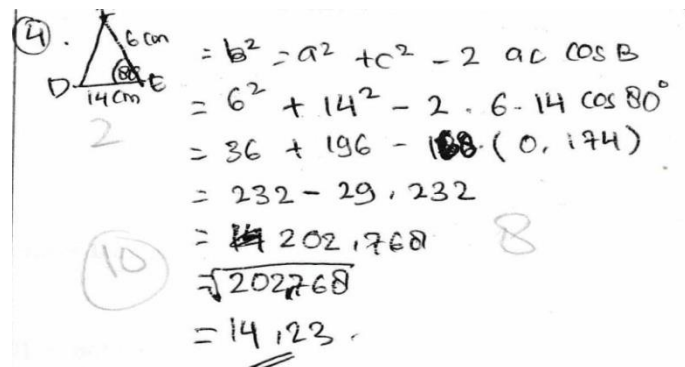 4.
6 cm
80°
D E
14 cm
= b² = a² + c² - 2 ac cos B
= 6² + 14² - 2 . 6 . 14 cos 80°
2
= 36 + 196 - 168 . ( 0, 174 )
= 232 - 29, 232
= 202, 768
8
10
= √202,768
= 14,23 .